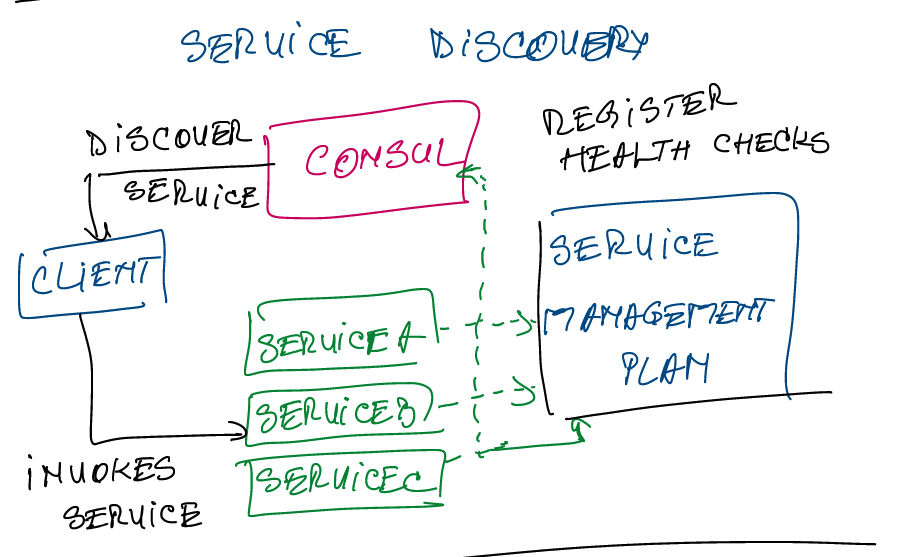 SERVICE DISCOVERY
DISCOVER
SERVICE
CONSUL
REGISTER
HEALTH CHECKS
CLIENT
SERVICE
MANAGEMENT
PLAN
SERVICE A
SERVICE B
SERVICE C
INVOKES
SERVICE